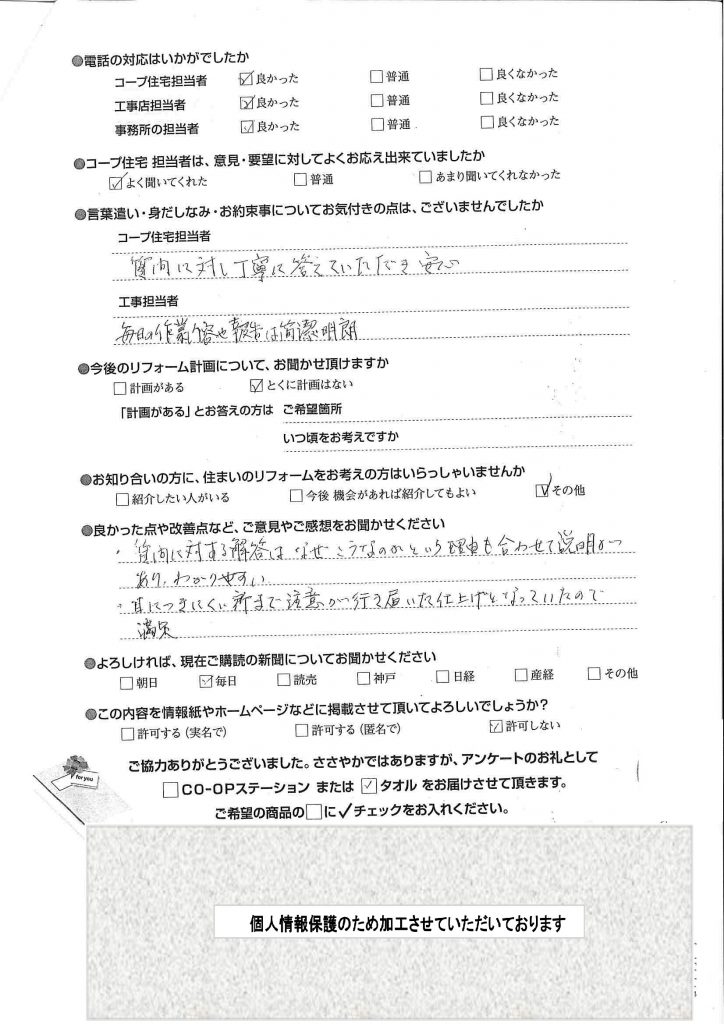 ●電話の対応はいかがでしたか
コープ住宅担当者 ☑良かった □普通 □良くなかった
工事店担当者 ☑良かった □普通 □良くなかった
事務所の担当者 ☑良かった □普通 □良くなかった
●コープ住宅 担当者は、意見・要望に対してよくお応え出来ていましたか
☑よく聞いてくれた □普通 □あまり聞いてくれなかった
●言葉遣い・身だしなみ・お約束事についてお気付きの点は、ございませんでしたか
コープ住宅担当者
質問に対し丁寧に答えていただき安心
工事担当者
毎日の作業内容や報告は簡潔明朗
●今後のリフォーム計画について、お聞かせ頂けますか
□計画がある ☑とくに計画はない
「計画がある」とお答えの方は ご希望箇所
いつ頃をお考えですか
●お知り合いの方に、住まいのリフォームをお考えの方はいらっしゃいませんか
□紹介したい人がいる □今後 機会があれば紹介してもよい ☑その他
●良かった点や改善点など、ご意見やご感想をお聞かせください
・質問に対する解答はなぜこうなのかという理由も合わせて説明が
あり、わかりやすい
・目につきにくい所まで注意が行き届いた仕上げとなっていたので
満足
●よろしければ、現在ご購読の新聞についてお聞かせください
□朝日 ☑毎日 □読売 □神戸 □日経 □産経 □その他
●この内容を情報紙やホームページなどに掲載させて頂いてよろしいでしょうか?
□許可する(実名で) □許可する(匿名で) ☑許可しない
for you
ご協力ありがとうございました。ささやかではありますが、アンケートのお礼として
□CO-OPステーション または ☑タオル をお届けさせて頂きます。
ご希望の商品の□に✓チェックをお入れください。
個人情報保護のため加工させていただいております